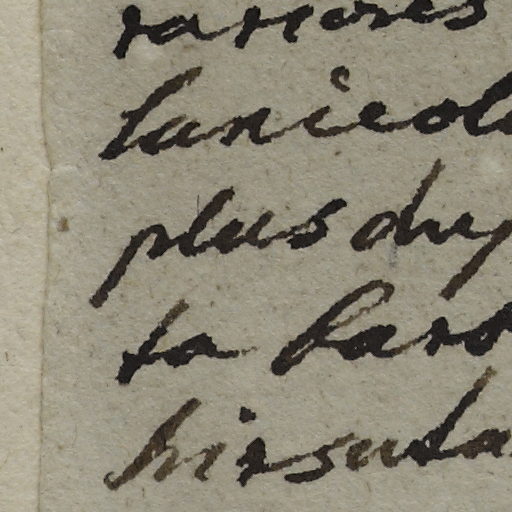 rariores
lanceol
plus dry
ta baro
hirsuta